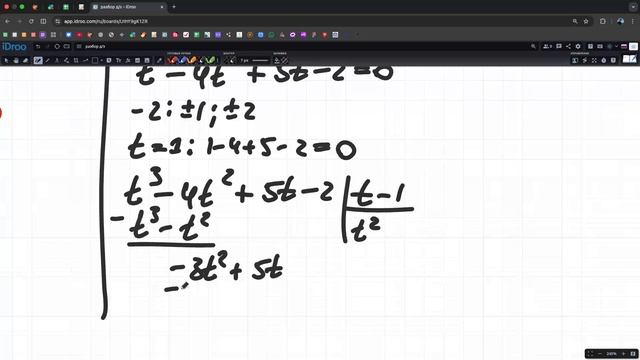 разбор д/з – iDroo
app.idroo.com/ru/boards/UtHY9gK1ZR
iDroo
разбор д/з
7 px
t - 4t + 5t - 2 = 0
-2: ±1; ±2
t = 1: 1 - 4 + 5 - 2 = 0
t³ - 4t² + 5t - 2 | t - 1
- t³ - t² | t²
-3t² + 5t
-
246%